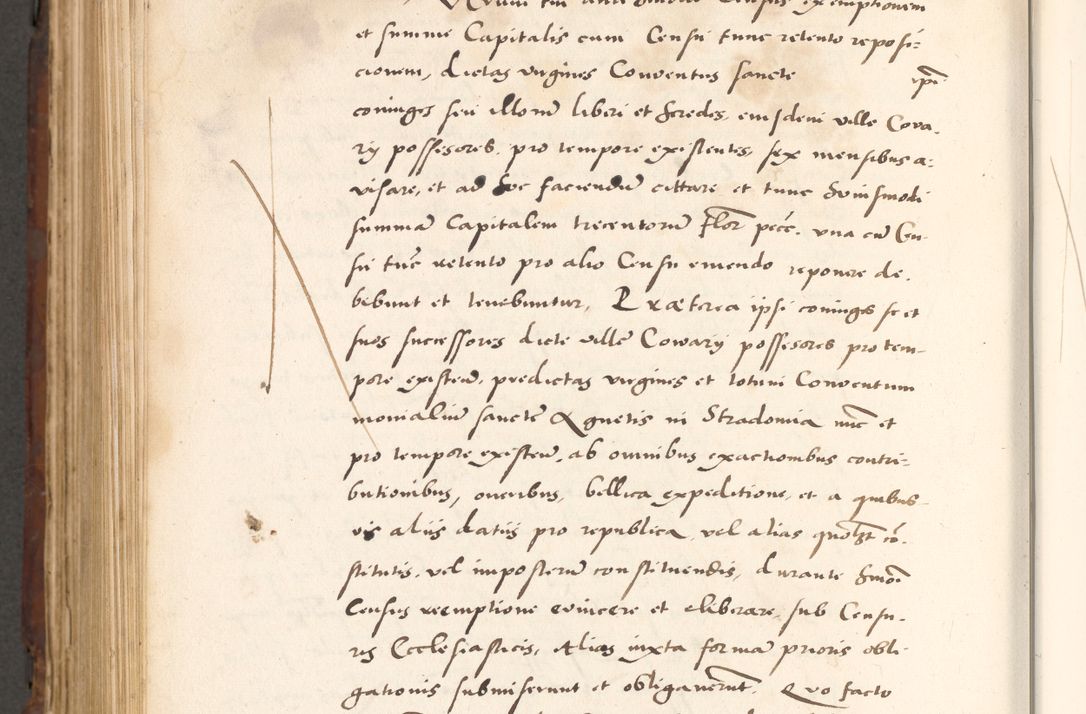 et summe Capitalis cum Censu tunc retento reposi=
cionem, dictas virgines Conventus sancte ipsi
coniuges seu illorum liberi et heredes, eiusdem ville Cova-
rÿ possessores, pro tempore existentes, sex mensibus a-
visare, et ad hoc faciendum cittare et tunc huiusmodi
summam Capitalem trecentorum flor pecc. vna cum Cen-
su tunc retento pro alio Censu emendo reponere de-
bebunt et tenebuntur, Præterea ipsi coniuges se et
suos successores dicte ville Cowarÿ possessores pro tem-
pore existen, predictas virgines et totum Conventum
monialium sancte Agnetis in Stradomia nunc et
pro tempore existen, ab omnibus exactionibus contri-
butionibus, oneribus, bellica expeditione, et a quibus-
vis aliis datiis pro republica vel alias quolibet con-
stitutis, vel imposterum constituendis, durante huiusmodi
Census reemptione evincere et eliberare, sub Censu-
ris Ecclesiasticis, Alias iuxta formam prioris obli-
gationis submiserunt et obligaverunt. Quo facto